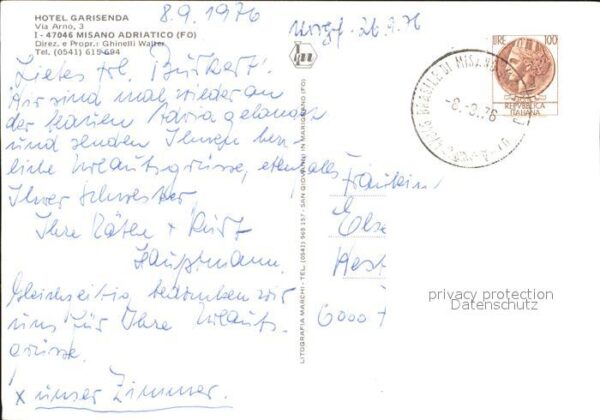 HOTEL GARISENDA
Via Arno, 3
I - 47046 MISANO ADRIATICO (FO)
Direz. e Propr.: Ghinelli Walter
Tel. (0541) 615 694
8.9.1976
26.9.76
Liebes Frl. Burkert!
Wir sind mal wieder an
der blauen Adria gelandet
und senden Ihnen herz-
liche Urlaubsgrüsse, ebenfalls
Ihrer Schwester.
Ihre Käten + Kurt
Hauptmann.
Gleichzeitig bedanken wir
uns für Ihre Urlaubs-
grüsse.
x unser Zimmer.
LITOGRAFIA MARCHI - TEL. (0541) 965 157 - SAN GIOVANNI IN MARIGNANO (FO)
LIRE 100
REPVBBLICA
ITALIANA
-8.-9.76
Fräulein
Else
6000
privacy protection
Datenschutz